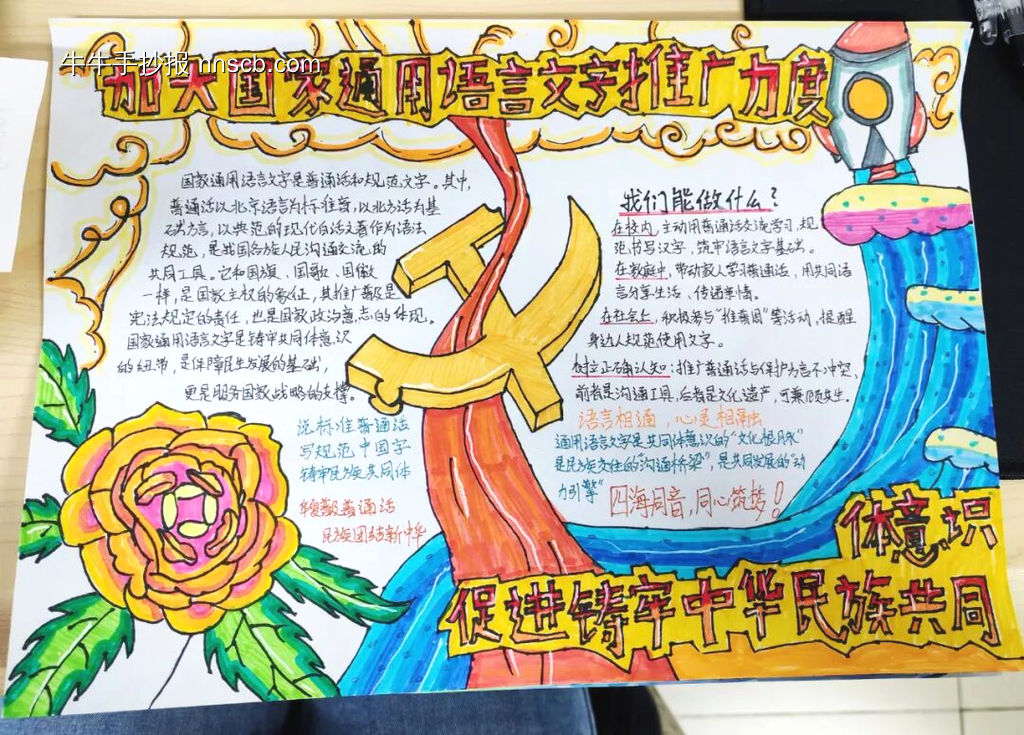 牛牛手抄报 nnscb.com
加大国家通用语言文字推广力度
国家通用语言文字是普通话和规范文字。其中,
普通话以北京语言为标准音,以北方话为基
础方言,以典范的现代白话文著作为语法
规范,是我国各族人民沟通交流的
共同工具。它和国旗、国歌、国徽
一样,是国家主权的象征,其推广普及是
宪法规定的责任,也是国家政治意志的体现。
国家通用语言文字是铸牢共同体意识
的纽带,是保障民生发展的基础,
更是服务国家战略的支撑。
说标准普通话
写规范中国字
铸牢民族共同体
普通话
民族团结新中华
我们能做什么?
在校内,主动用普通话交流学习,规
范书写汉字,筑牢语言文字基础。
在家庭中,带动家人学习普通话,用共同语
言分享生活、传递亲情。
在社会上,积极参与“推普周”等活动,提醒
身边人规范使用文字。
树立正确认知:推广普通话与保护方言不冲突,
前者是沟通工具,后者是文化遗产,可兼顾共生。
语言相通,心灵相融
通用语言文字是共同体意识的“文化根脉”
是民族交往的“沟通桥梁”,是共同发展的“动
力引擎”
四海同音,同心筑梦!
体意识
促进铸牢中华民族共同